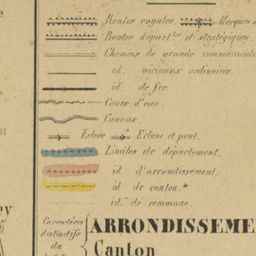 Routes royales. Marques
Routes départ.les et stratégiques
Chemins de grande
id. vicinaux ordinaires.
id. de fer.
Cours d'eau
Canaux.
Ecluse Ecluse et pont.
Limites de département.
id. d'arrondissement.
id. de canton.
id. de commune.
ey
Caractères
distinctifs
ARRONDISSEME
Canton